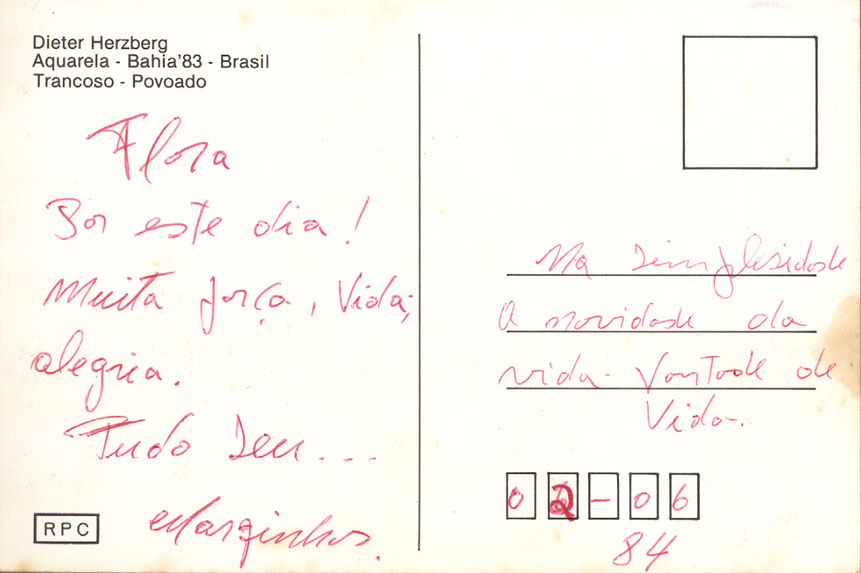 Dieter Herzberg
Aquarela - Bahia'83 - Brasil
Trancoso - Povoado
Flora
Por este dia!
Muita força, vida,
alegria.
Tudo seu...
Marginhos.
RPC
Na simplesidade
a novidade da
vida - Vontade de
Vida.
02-06
84